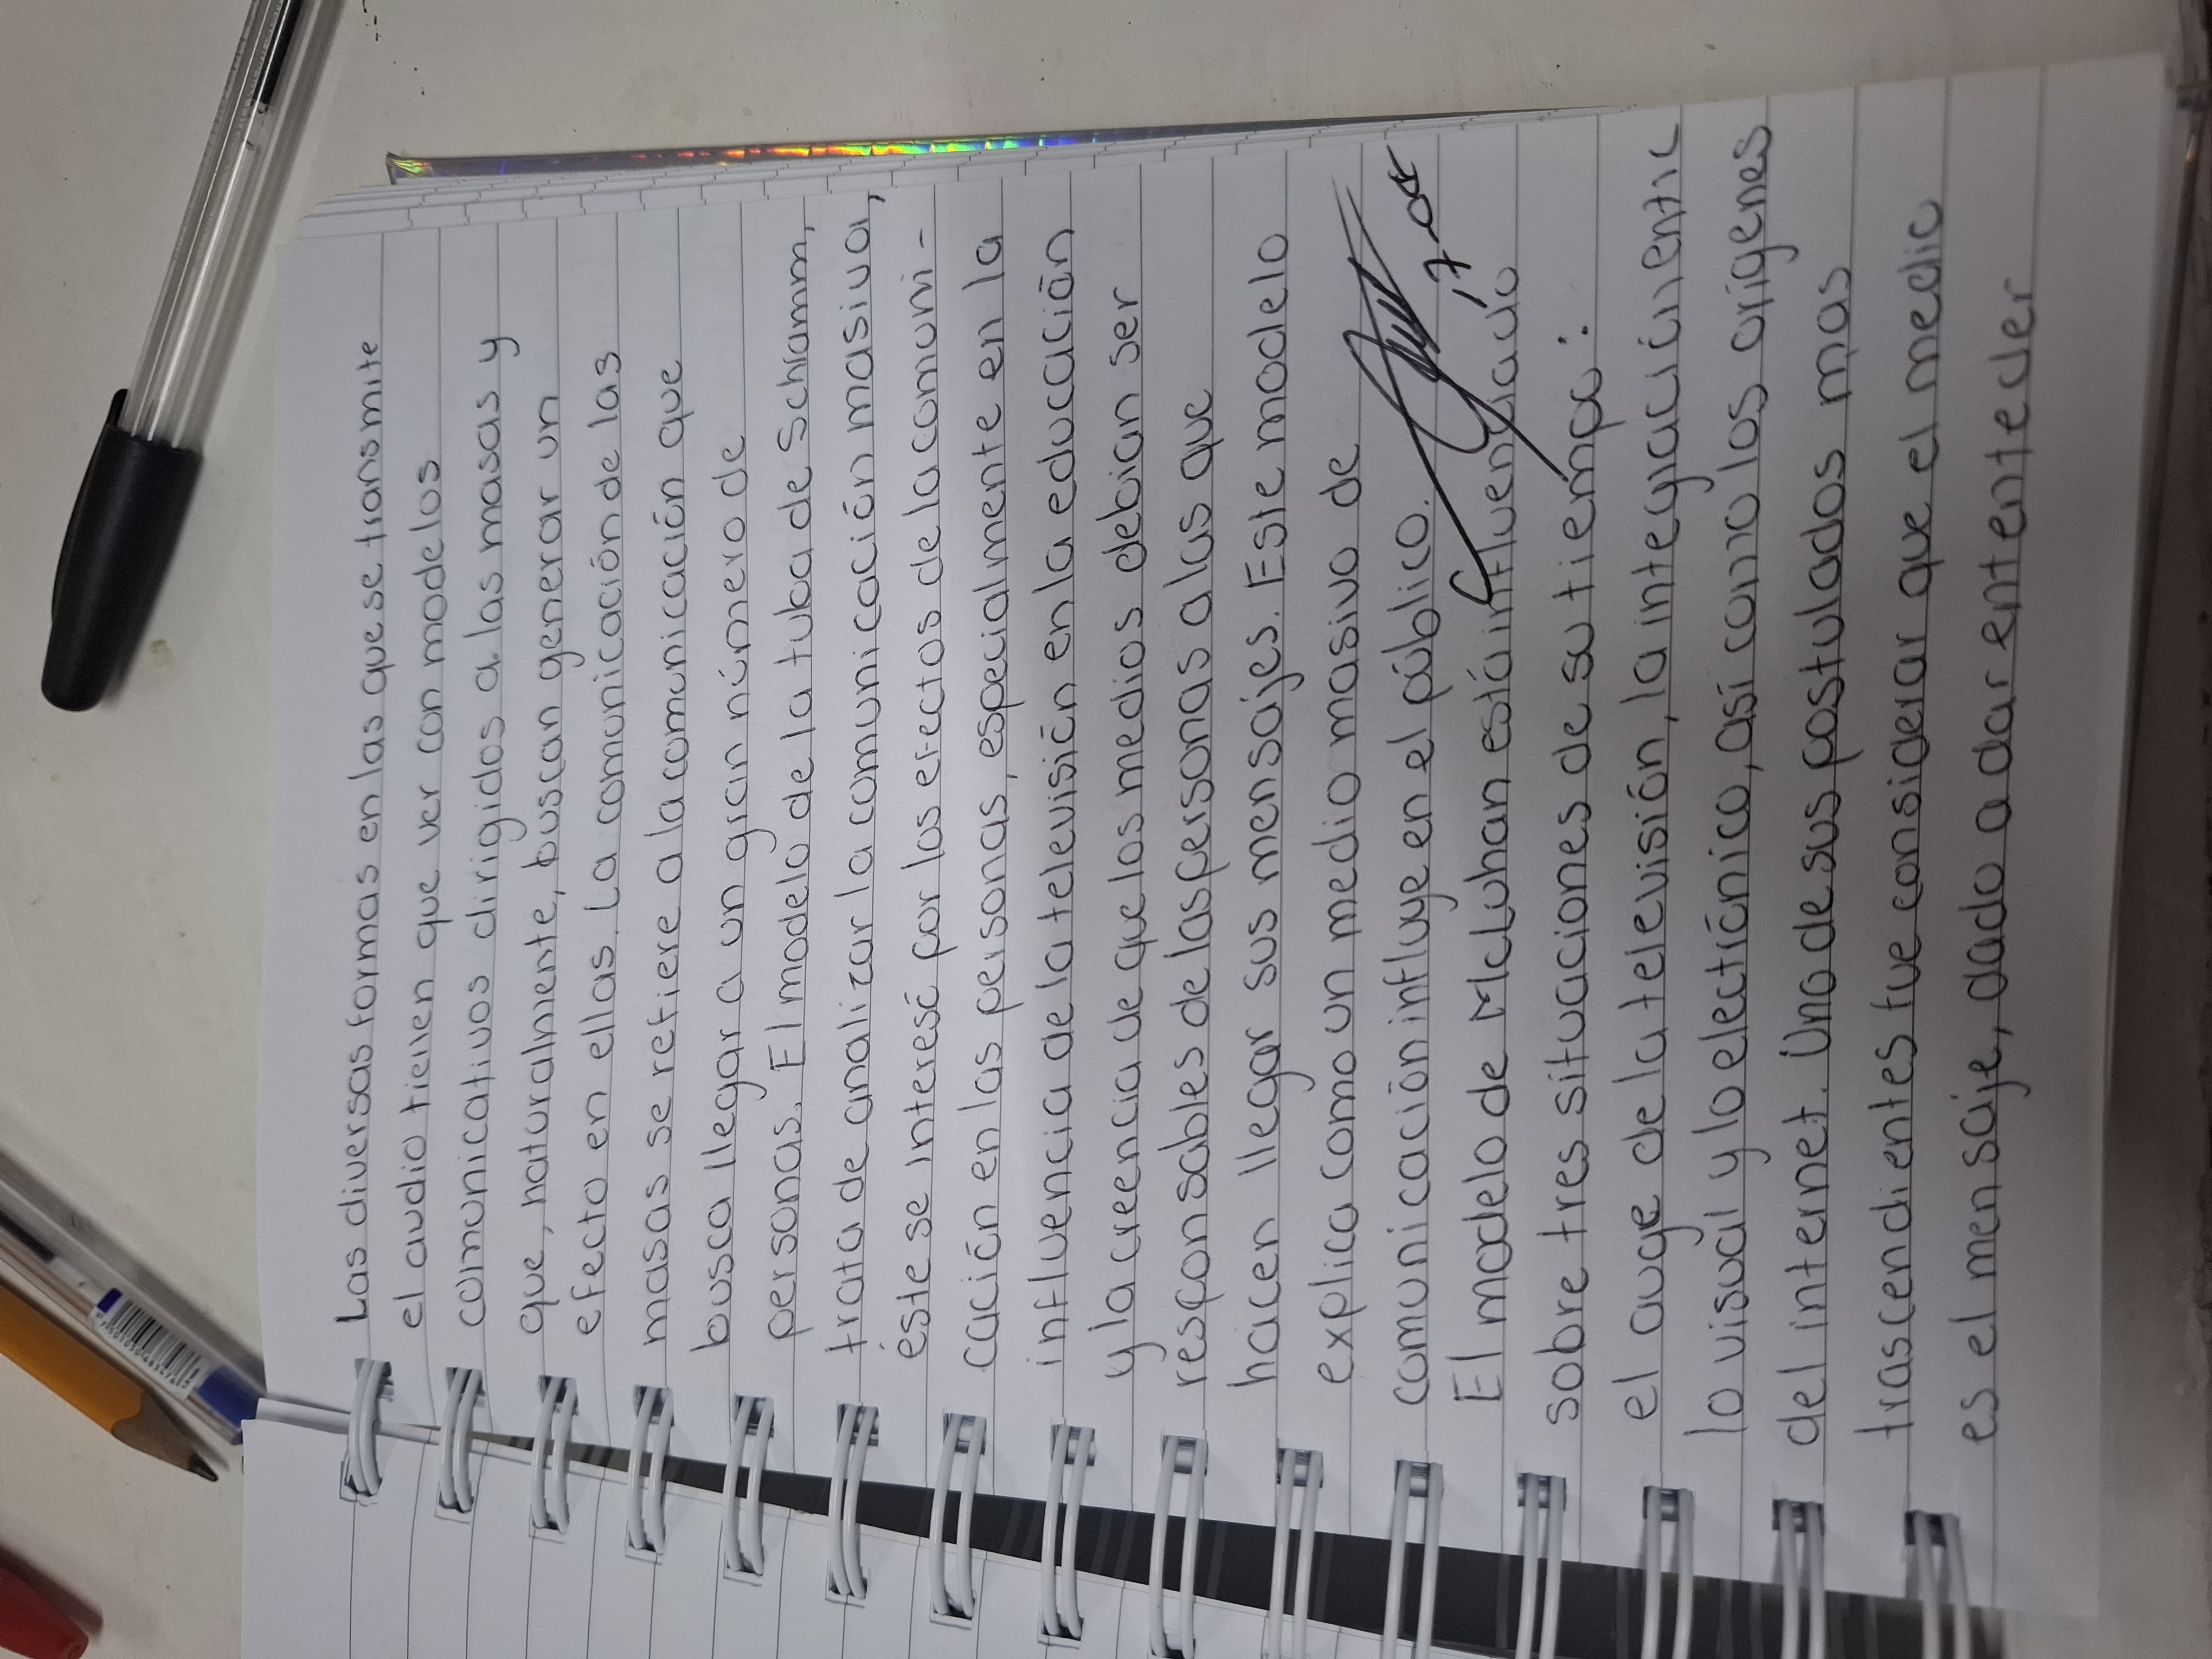 Las diversas formas en las que se transmite
el audio tienen que ver con modelos
comunicativos dirigidos a las masas y
que, naturalmente, buscan generar un
efecto en ellas. La comunicación de las
masas se refiere a la comunicación que
busca llegar a un gran número de
personas. El modelo de la tuba de Schramm,
trata de analizar la comunicación masiva,
éste se interesó por los efectos de la comuni-
cación en las personas, especialmente en la
influencia de la televisión en la educación
y la creencia de que los medios debían ser
responsables de las personas a las que
hacen llegar sus mensajes. Este modelo
explica como un medio masivo de
comunicación influye en el público.
El modelo de McLuhan está influenciado
sobre tres situaciones de su tiempo:
el auge de la televisión, la integración entre
lo visual y lo electrónico, así como los orígenes
del internet. Uno de sus postulados mas
trascendientes fue considerar que el medio
es el mensaje, dado a dar entender